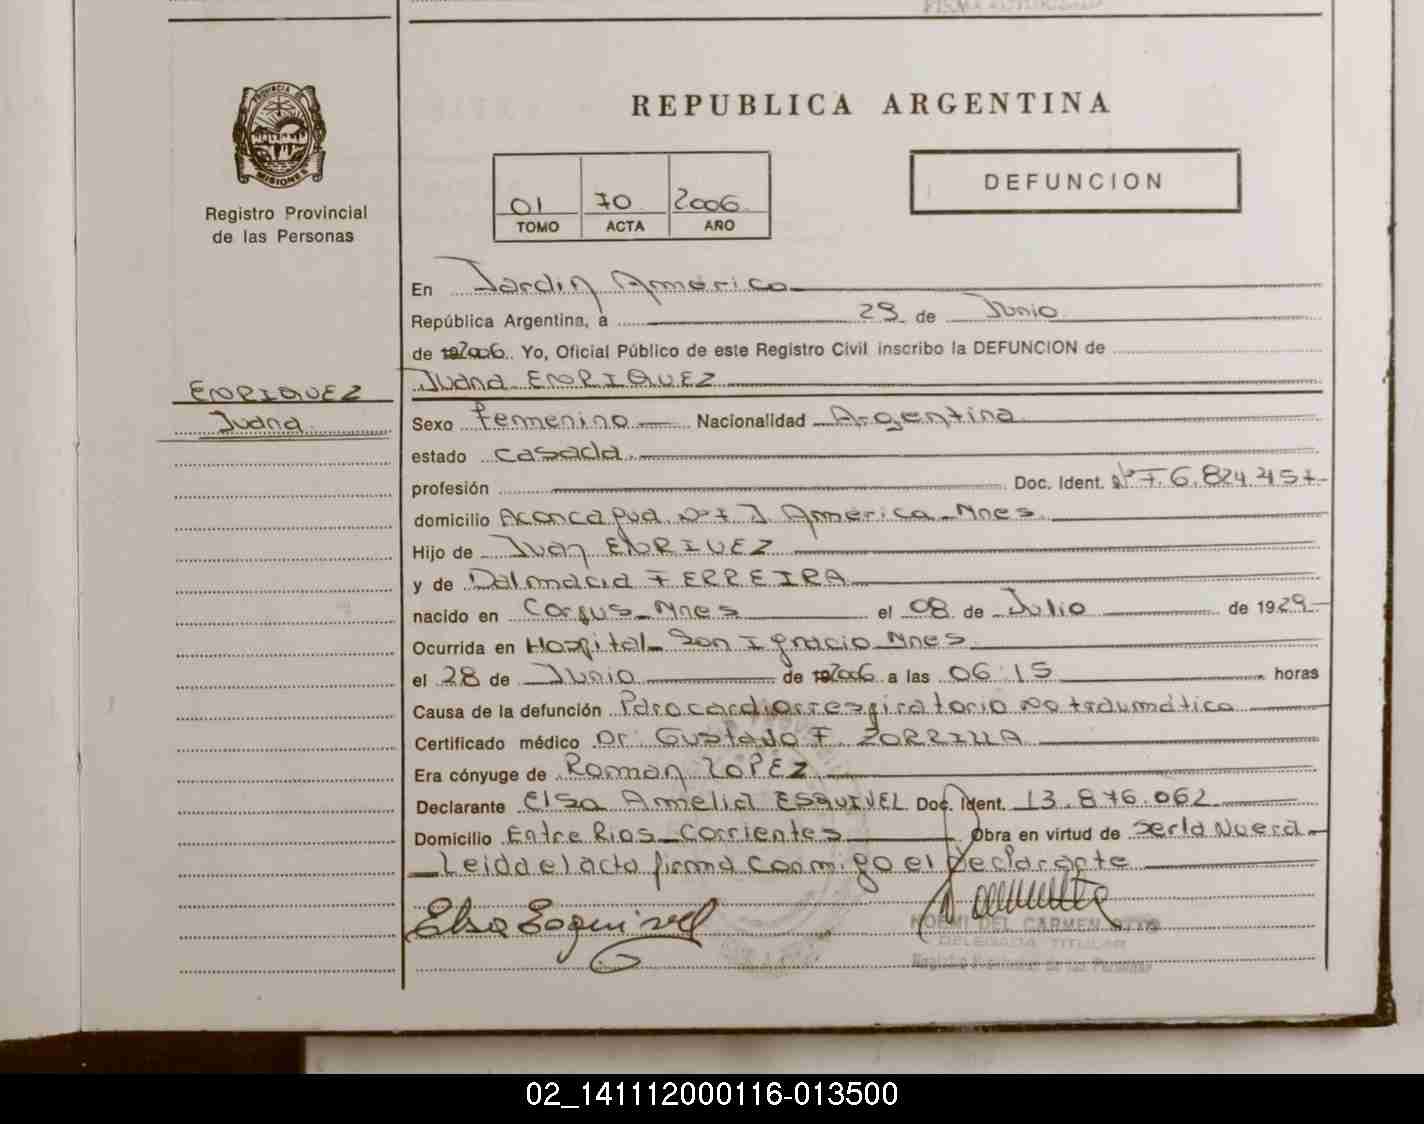 PROVINCIA DE
MISIONES
Registro Provincial
de las Personas
REPUBLICA ARGENTINA
01 70 2006
TOMO ACTA AÑO
DEFUNCION
En Jardin América
República Argentina, a 29 de Junio
de 192006. Yo, Oficial Público de este Registro Civil inscribo la DEFUNCION de
Juana ENRIQUEZ
ENRIQUEZ
Juana
Sexo Femenino Nacionalidad Argentina
estado casada
profesión Doc. Ident. Nº F 6.824.457
domicilio Aconcagua Nº 7 J. América - Mnes
Hijo de Juan ENRIUEZ
y de Dalmacia FERREIRA
nacido en Corpus - Mnes el 08 de Julio de 1929
Ocurrida en Hospital San Ignacio Mnes
el 28 de Junio de 192006 a las 06:15 horas
Causa de la defunción Paro cardiorrespiratorio no traumático
Certificado médico Dr. Gustavo F. ZORRILLA
Era cónyuge de Roman LOPEZ
Declarante Elsa Amelia ESQUIVEL Doc. Ident. 13.876.062
Domicilio Entre Rios - Corrientes Obra en virtud de ser la Nuera
Leida el acta firma conmigo el Declarante
Elsa Esquivel
NOEMI DEL CARMEN
DELEGADA TITULAR
Registro Provincial de las Personas
02_141112000116-013500